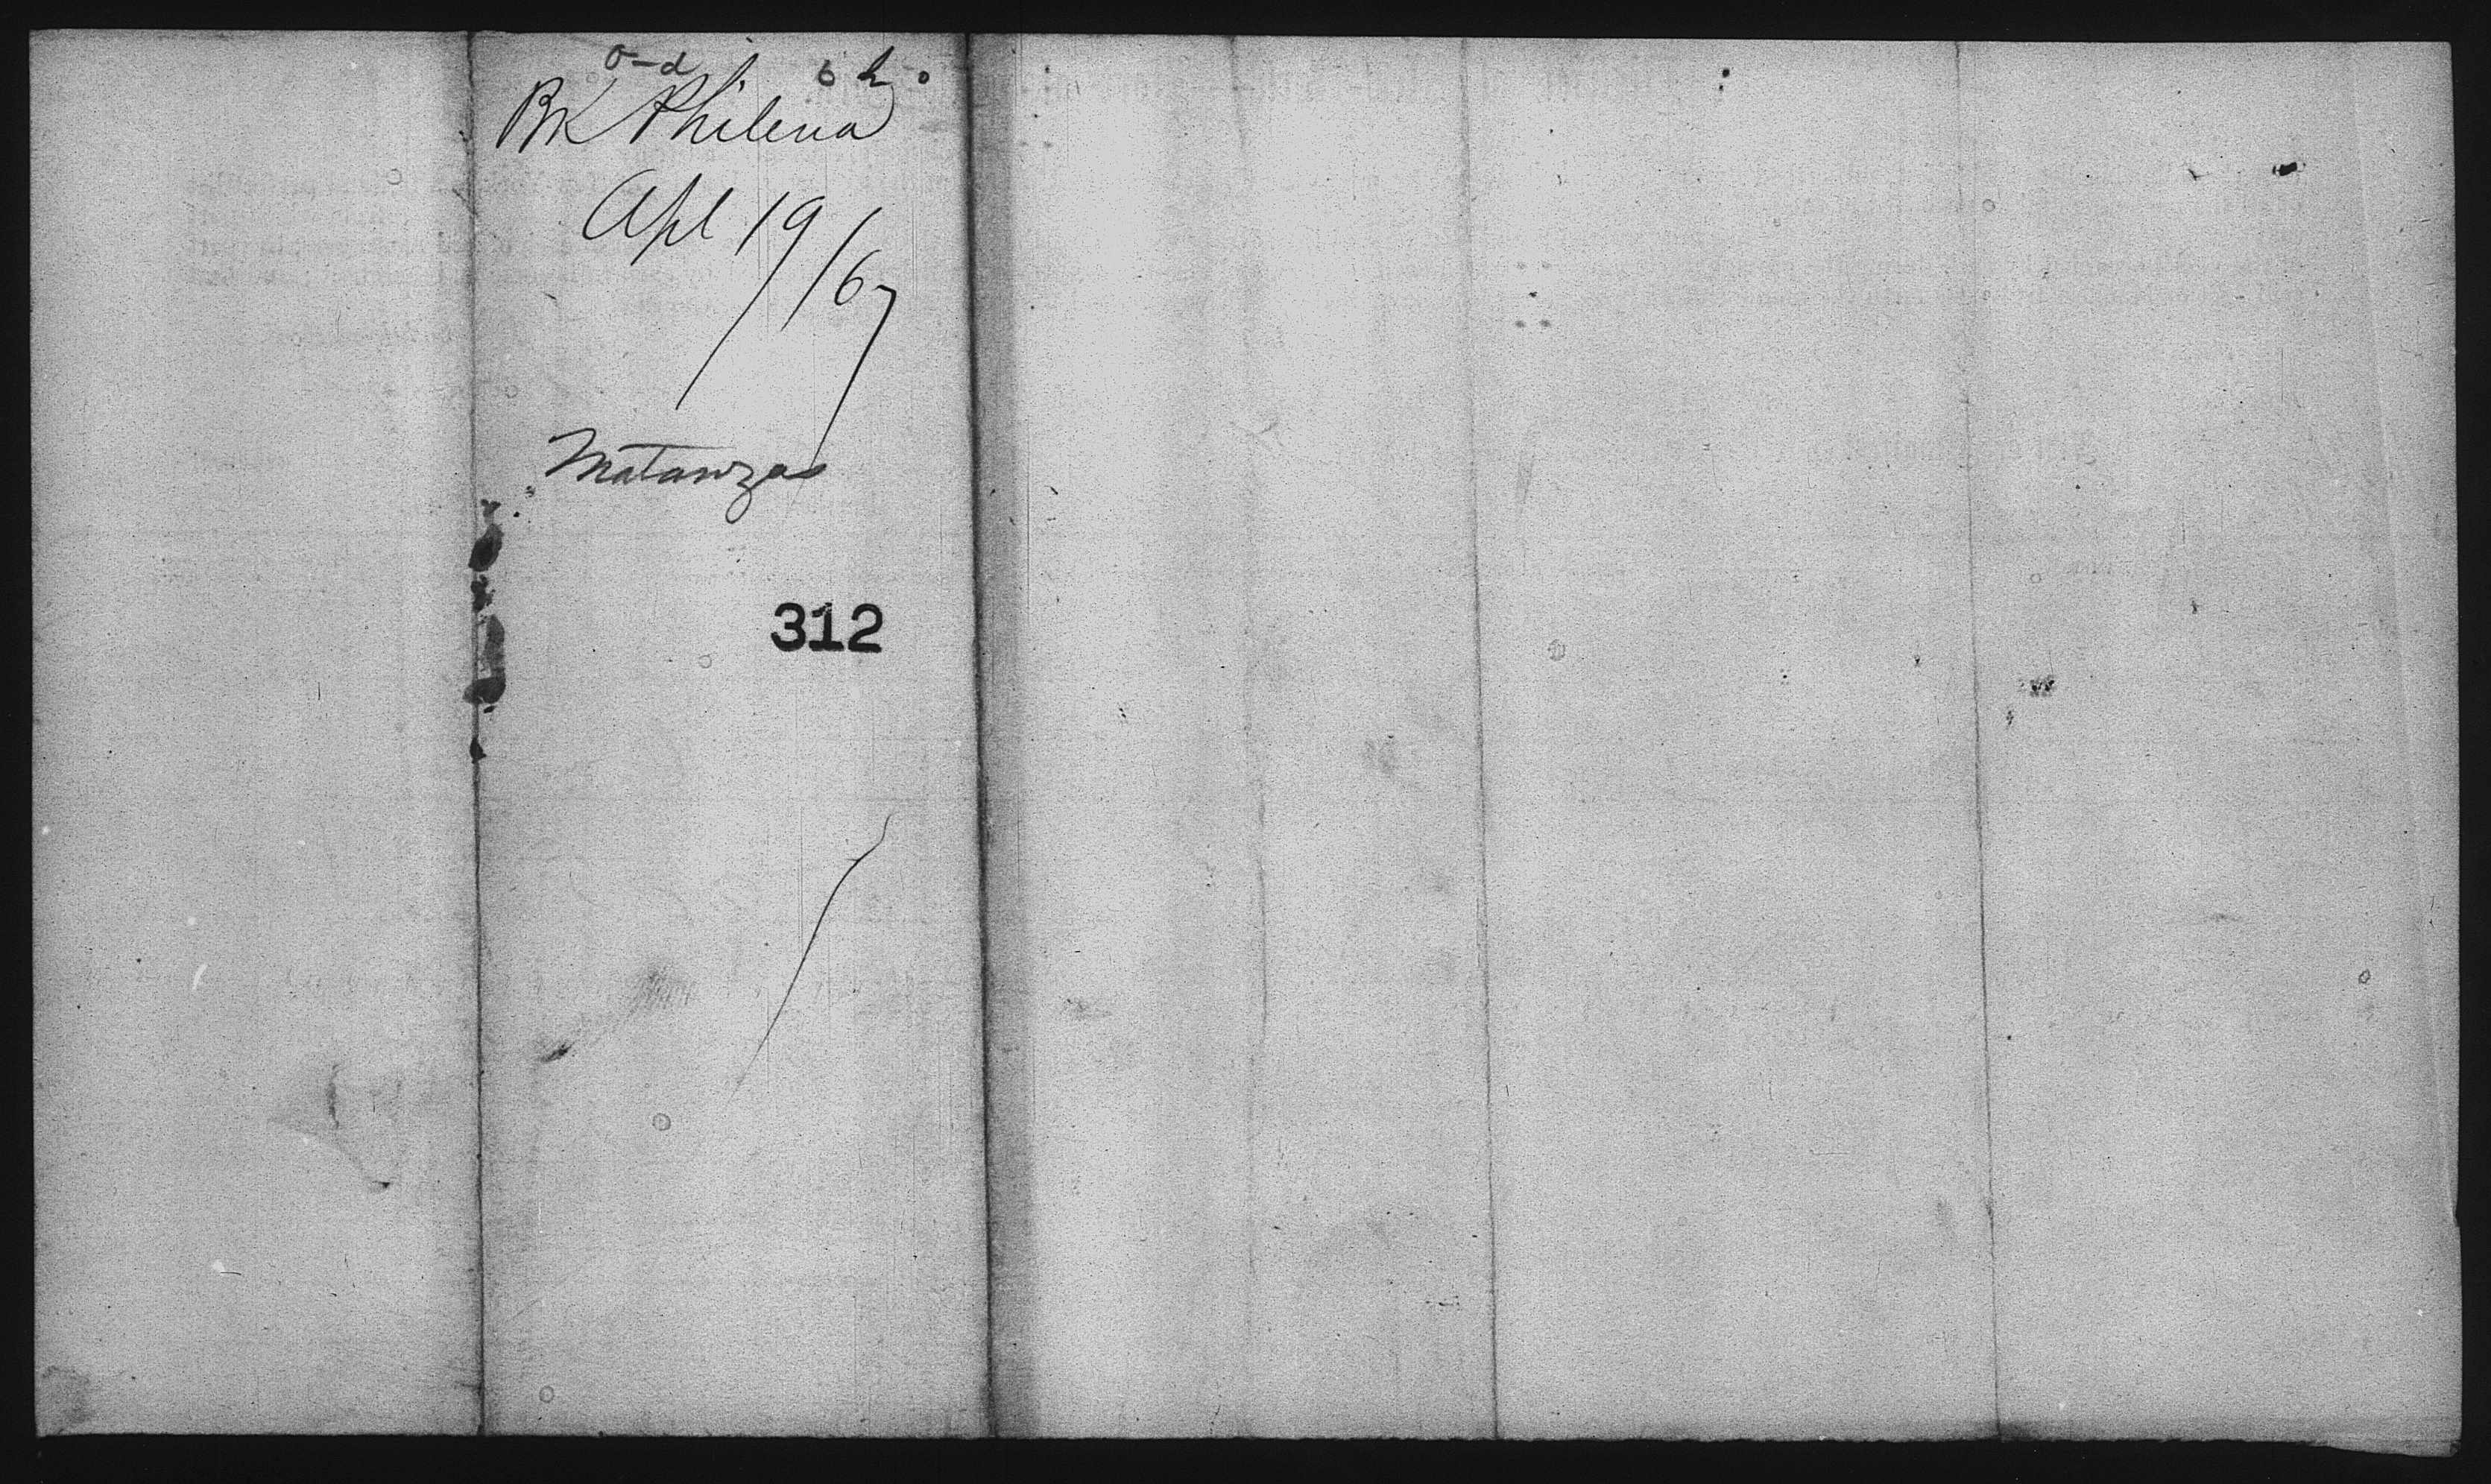 Bk Philena
Apl 19/67
Matanzas
312